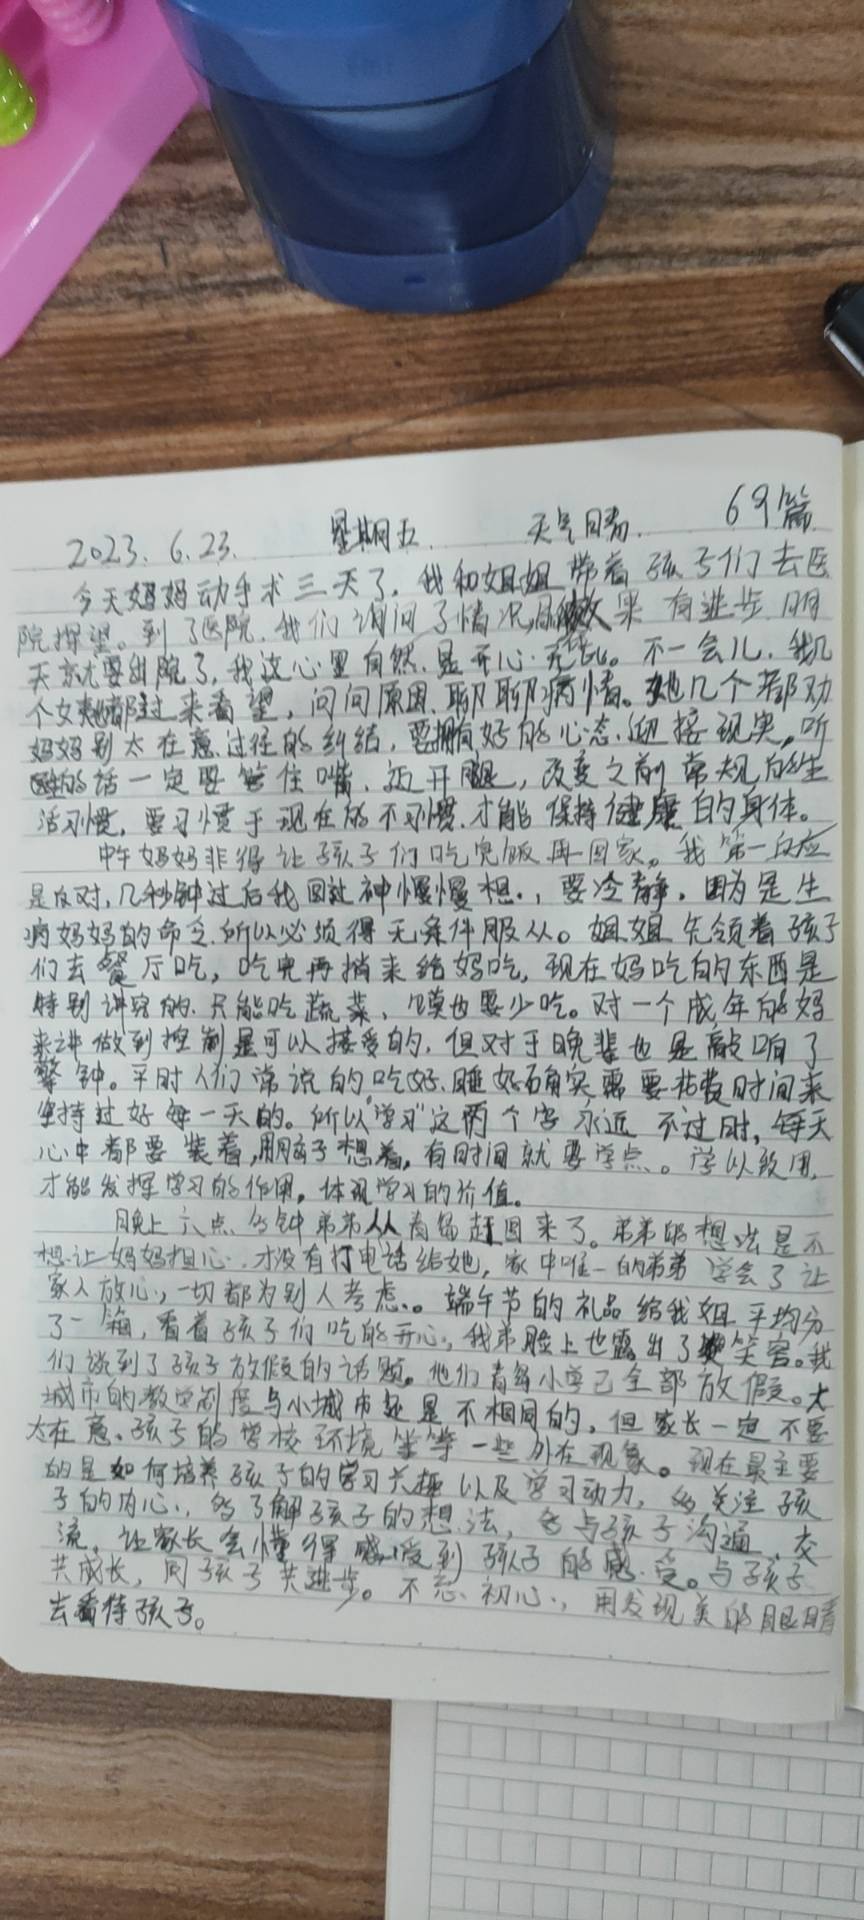 69篇
2023.6.23. 星期五. 天气晴.
今天妈妈动手术三天了,我和姐姐带着孩子们去医
院探望。到了医院,我们询问了情况,效果有进步,明
天就要出院了,我这心里自然是开心无比。不一会儿,我几
个女都过来看望,问问原因,聊聊病情。她几个都劝
妈妈别太在意过往的纠结,要拥有好的心态,迎接现实,听
医生的话一定要管住嘴,迈开腿,改变之前常规的生
活习惯,要习惯于现在的不习惯,才能保持健康的身体。
中午妈妈非得让孩子们吃完饭再回家。我第一反应
是反对,几秒钟过后我回过神慢慢想,要冷静,因为是生
病妈妈的命令,所以必须得无条件服从。姐姐先领着孩子
们去餐厅吃,吃完再捎来给妈吃,现在妈吃的东西是
特别讲究的,只能吃蔬菜,馍也要少吃。对一个成年的妈
来讲做到控制是可以接受的,但对于晚辈也是敲响了
警钟。平时人们常说的吃好,睡好确实需要花费时间来
坚持过好每一天的。所以"学习"这两个字永远不过时,每天
心中都要装着,用脑子想着,有时间就要学点。学以致用,
才能发挥学习的作用,体现学习的价值。
晚上六点多钟弟弟从青岛赶回来了。弟弟的想法是不
想让妈妈担心,才没有打电话给她,家中唯一的弟弟学会了让
家人放心,一切都为别人考虑。端午节的礼品给我姐平均分
了一箱,看着孩子们吃的开心,我弟脸上也露出了笑容。我
们谈到了孩子放假的话题。他们青岛小学已全部放假。大
城市的教学制度与小城市还是不相同的,但家长一定不要
太在意,孩子的学校环境等等一些外在现象。现在最主要
的是如何培养孩子的学习兴趣以及学习动力,多关注孩
子的内心,多了解孩子的想法,多与孩子沟通、交
流,让家长会懂得感受到孩子的感受。与孩子
共成长,同孩子共进步。不忘初心,用发现美的眼睛
去看待孩子。